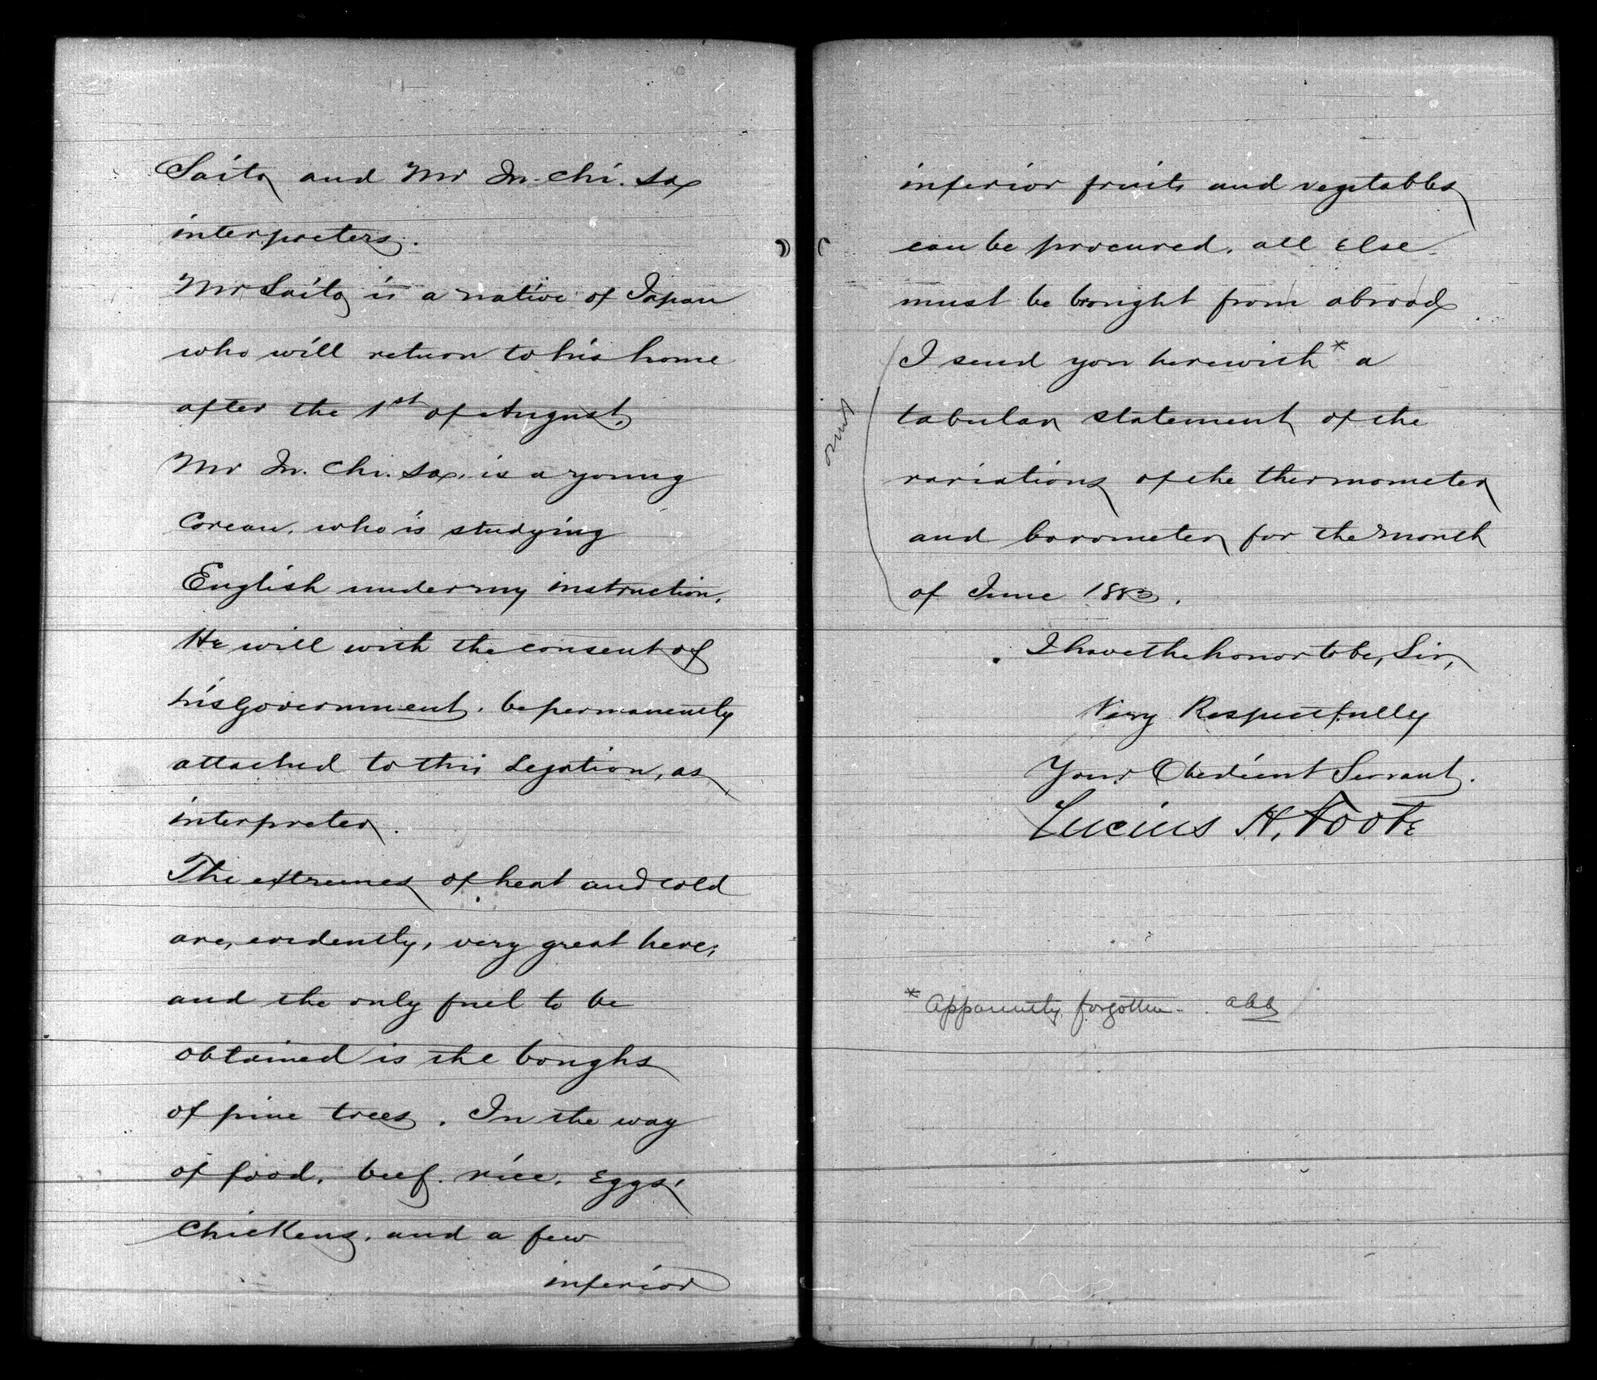 Saito and Mr In. Chi. So
interpreters.
Mr Saito is a native of Japan
who will return to his home
after the 1st of August,
Mr In. Chi. So, is a young
Corean, who is studying
English under my instruction,
He will with the consent of
his Government, be permanently
attached to this Legation, as
interpreter.
The extremes of heat and cold
are, evidently, very great here;
and the only fuel to be
obtained is the boughs
of pine trees. In the way
of food, beef, rice, Eggs,
Chickens, and a few
inferior
inferior fruits and vegetables
can be procured, all Else
must be brought from abroad
I send you herewith* a
tabular statement of the
variations of the thermometer
and barometer for the month
of June 1883.
omit
I have the honor to be, Sir,
Very Respectfully
Your Obedient Servant.
Lucius H. Foote
* Apparently forgotten.